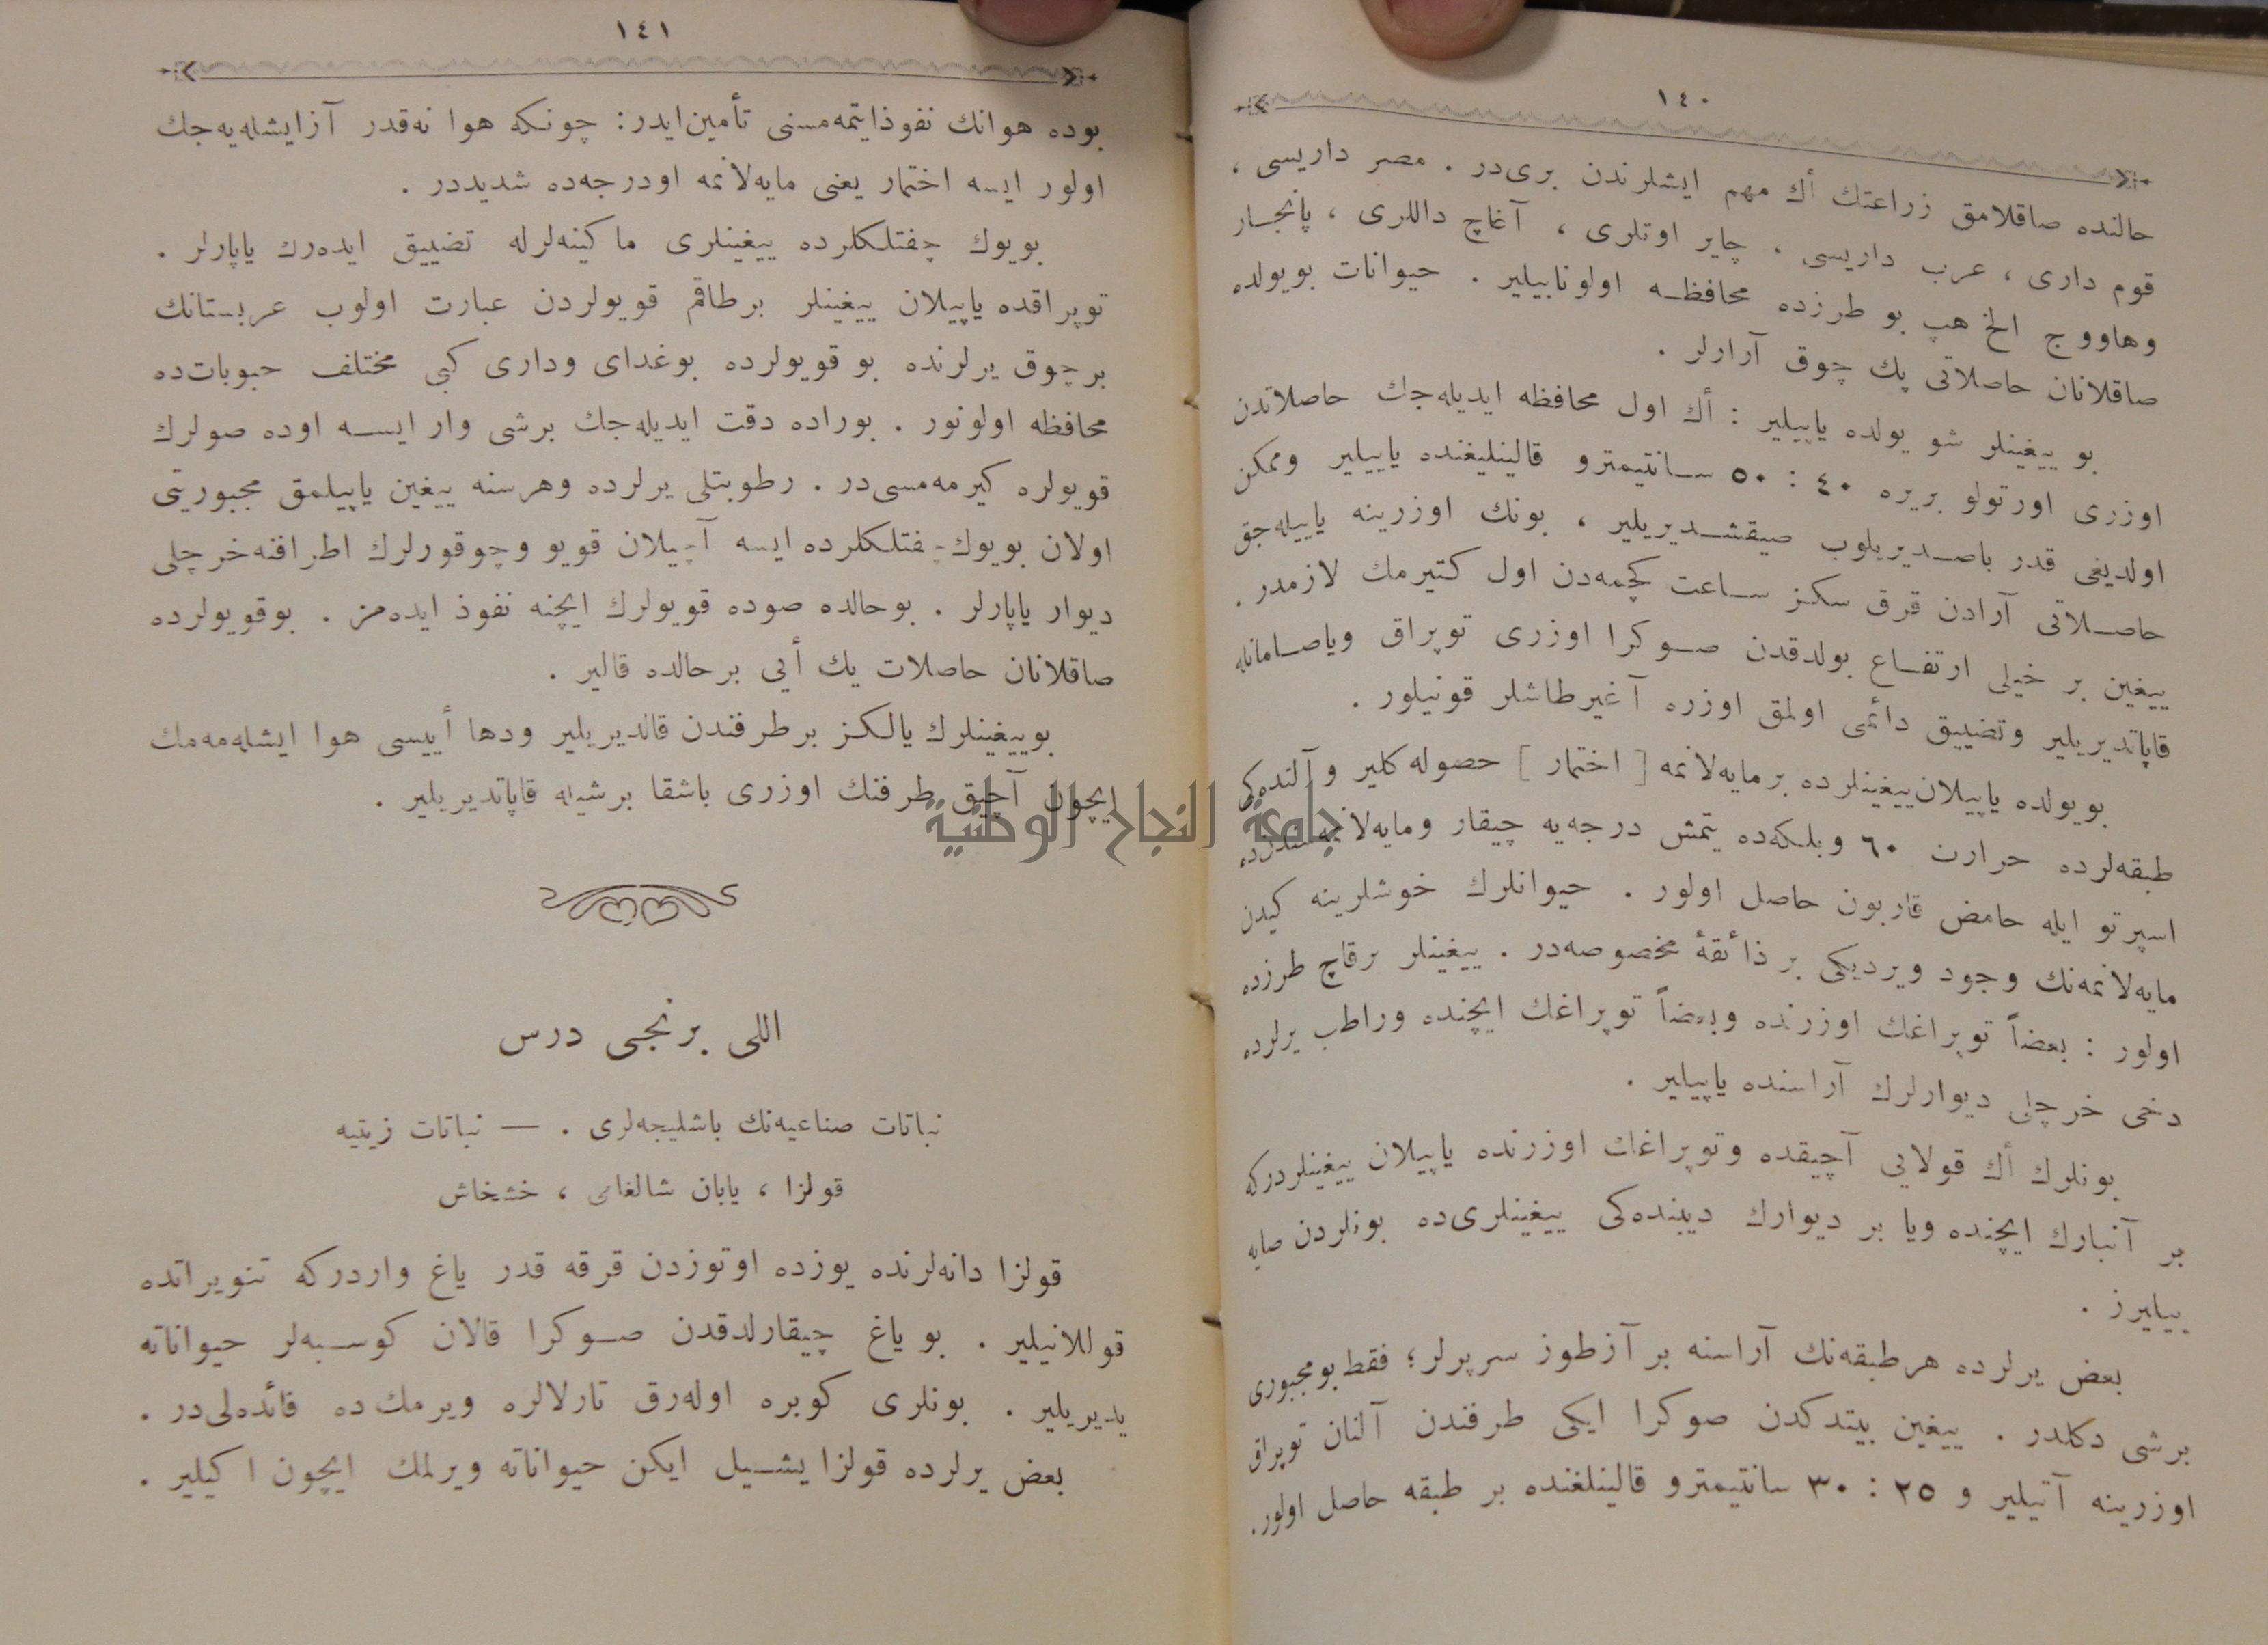 ١٤٠
حالنده صاقلامق زراعتك أك مهم ايشلرندن برى‌در . مصر داريسى ،
قوم دارى ، عرب داريسى ، چاير اوتلرى ، آغاچ داللرى ، پانجار
وهاووج الخ هپ بو طرزده محافظه اولونابيلير . حيوانات بويولده
صاقلانان حاصلاتى پك چوق آرارلر .
بو ييغينلر شو يولده ياپيلير : أك اول محافظه ايديله‌جك حاصلاتدن
اوزرى اورتولو بريره ٤٠ : ٥٠ سانتيمترو قالينليغنده ياپيلير وممكن
اولديغى قدر باصديريلوب صيقشديريلير ، بونك اوزرينه ياپيله‌جق
حاصلاتى آرادن قرق سكز ساعت كچمه‌دن اول كتيرمك لازمدر .
ييغين بر خيلى ارتفاع بولدقدن صوكرا اوزرى توپراق وياصامانله
قاپاتديريلير وتضييق دائمى اولمق اوزره آغيرطاشلر قونيلور .
بويولده ياپيلان‌ييغينلرده برمايه‌لانمه [ اختمار ] حصوله كلير وآلتده‌كى
طبقه‌لرده حرارت ٦٠ وبلكه‌ده يتمش درجه‌يه چيقار ومايه‌لانمه‌سندن‌ده
اسپرتو ايله حامض قاربون حاصل اولور . حيوانلرك خوشلرينه كيدن
مايه‌لانمه‌نك وجود ويرديكى بر ذائقۀ مخصوصه‌در . ييغينلر برقاچ طرزده
اولور : بعضاً توپراغك اوزرنده وبعضاً توپراغك ايچنده وراطب يرلرده
دخى خرچلى ديوارلرك آراسنده ياپيلير .
بونلرك أك قولايى آچيقده وتوپراغك اوزرنده ياپيلان ييغينلردركه
بر آنبارك ايچنده ويا بر ديوارك ديبنده‌كى ييغينلرى‌ده بونلردن صايه
بيليرز .
بعض يرلرده هرطبقه‌نك آراسنه بر آزطوز سرپرلر؛ فقط بو مجبورى
برشى دكلدر . ييغين بيتدكدن صوكرا ايكى طرفندن آلنان توپراق
اوزرينه آتيلير و ٢٥ : ٣٠ سانتيمترو قالينلغنده بر طبقه حاصل اولور.
١٤١
بوده هوانك نفوذايتمه‌مسنى تأمين‌ايدر: چونكه هوا نه‌قدر آزايشله‌يه‌جك
اولور ايسه اختمار يعنى مايه‌لانمه اودرجه‌ده شديددر .
بويوك چفتلكلرده ييغينلرى ماكينه‌لرله تضييق ايده‌رك ياپارلر .
توپراقده ياپيلان ييغينلر برطاقم قويولردن عبارت اولوب عربستانك
برچوق يرلرنده بو قويولرده بوغداى ودارى كبى مختلف حبوبات‌ده
محافظه اولونور . بوراده دقت ايديله‌جك برشى وار ايسه اوده صولرك
قويولره كيرمه‌مسى‌در . رطوبتلى يرلرده وهرسنه ييغين ياپيلمق مجبوريتى
اولان بويوك‌چفتلكلرده ايسه آچيلان قويو وچوقورلرك اطرافنه‌خرچلى
ديوار ياپارلر . بوحالده صوده قويولرك ايچنه نفوذ ايده‌مز . بوقويولرده
صاقلانان حاصلات پك أيى برحالده قالير .
بوييغينلرك يالكز برطرفندن قالديريلير ودها أييسى هوا ايشله‌مه‌مك
ايچون آچيق طرفنك اوزرى باشقا برشيله قاپاتديريلير .
جامعة النجاح الوطنية
اللى برنجى درس
نباتات صناعيه‌نك باشليجه‌لرى . — نباتات زيتيه
قولزا ، يابان شالغامى ، خشخاش
قولزا دانه‌لرنده يوزده اوتوزدن قرقه قدر ياغ واردركه تنويراتده
قوللانيلير . بو ياغ چيقارلدقدن صوكرا قالان كوسبه‌لر حيواناته
يديريلير . بونلرى كوبره اوله‌رق تارلالره ويرمك‌ده فائده‌لى‌در .
بعض يرلرده قولزا يشيل ايكن حيواناته ويرلمك ايچون اكيلير .